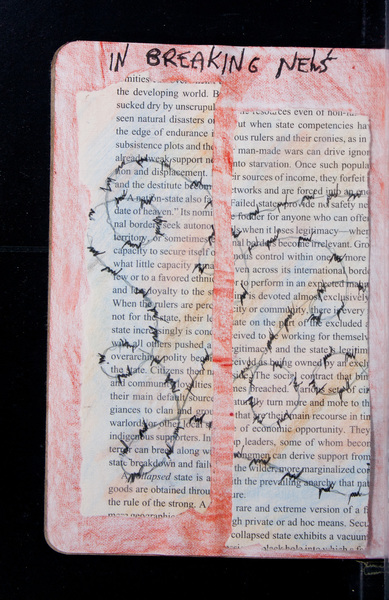 IN BREAKING NEWS
the developing world. B
sucked dry by unscrupul
seen natural disasters o
the edge of endurance i
subsistence plots and the
already weak support ne
tion and displacement,
and the destitute be
A nation-state also fa
date of heaven." Its nomi
nal borders seek autono
territory, or sometimes
capacity to secure itself o
what little capacity
few or to a favored ethnic
and loyalty to the s
When the rulers are perc
not for the state, their le
state increasingly is conc
with all others pushed a
overarching polity bec
state. Citizens
and communi alities
their main default source
giances to clan
warlords or other
indigenous supporters. In
terror can breed along w
state breakdown and failu
A collapsed state is a
goods are obtained throu
the rule of the strong. A
the resources even of
but when state competencies ha
ous rulers and their cronies, as in
man-made wars can drive ignor
into starvation. Once such popula
ir sources of income, they forfeit
tworks and are forced into
Failed states provide no safety ne
fodder for anyone who can offer
s when it legitimacy—when
nal borders become irrelevant. Gro
omous control within one or more
even across its international border
to perform in an expected ma
is devoted almost exclusively
ity or community, there is every
ate on the excluded
ceived to working for themselves
legitimacy and the state's legitim
as being owned by an excl
The social contract that bin
breached. Various sets of cit
turn more and more to the
that human recourse in tim
of economic opportunity. They
p leaders, some of whom becom
can derive support from
the wilder more marginalized co
th the prevailing anarchy that na
rare and extreme version of a f
gh private or ad hoc means. Secu
collapsed state exhibits a vacuum
black hole into which a f